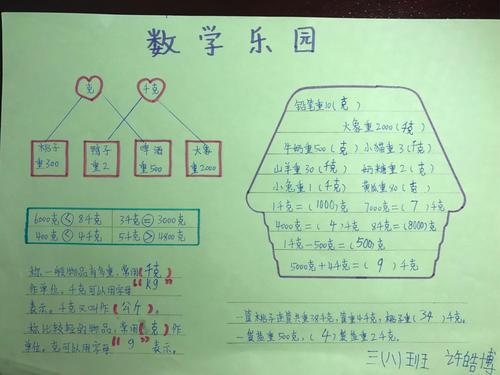 数学乐园
克 千克
桃子重300
鸭子重2
啤酒重500
大象重2000
6000克<8千克 3千克=3000克
400克<4千克 5千克>4800克
称一般物品有多重,常用(千克)
作单位,千克可以用字母"kg"
表示。千克又叫作(公斤)。
称比较轻的物品,常用(克)作
单位。克可以用字母"g"表示。
铅笔重10(克)
大象重2000(千克)
牛奶重500(克) 小猫重3(千克)
山羊重30(千克) 奶糖重2(克)
小兔重1(千克) 黄瓜重90(克)
1千克=(1000)克 7000克=(7)千克
4000克=(4)千克 8千克=(8000)克
1千克-500克=(500)克
5000克+4千克=(9)千克
一篮桃子连篮共重38千克,篮重4千克,桃子重(34)千克。
一袋盐重500克,(4)袋盐重2千克。
三(八)班 许皓博